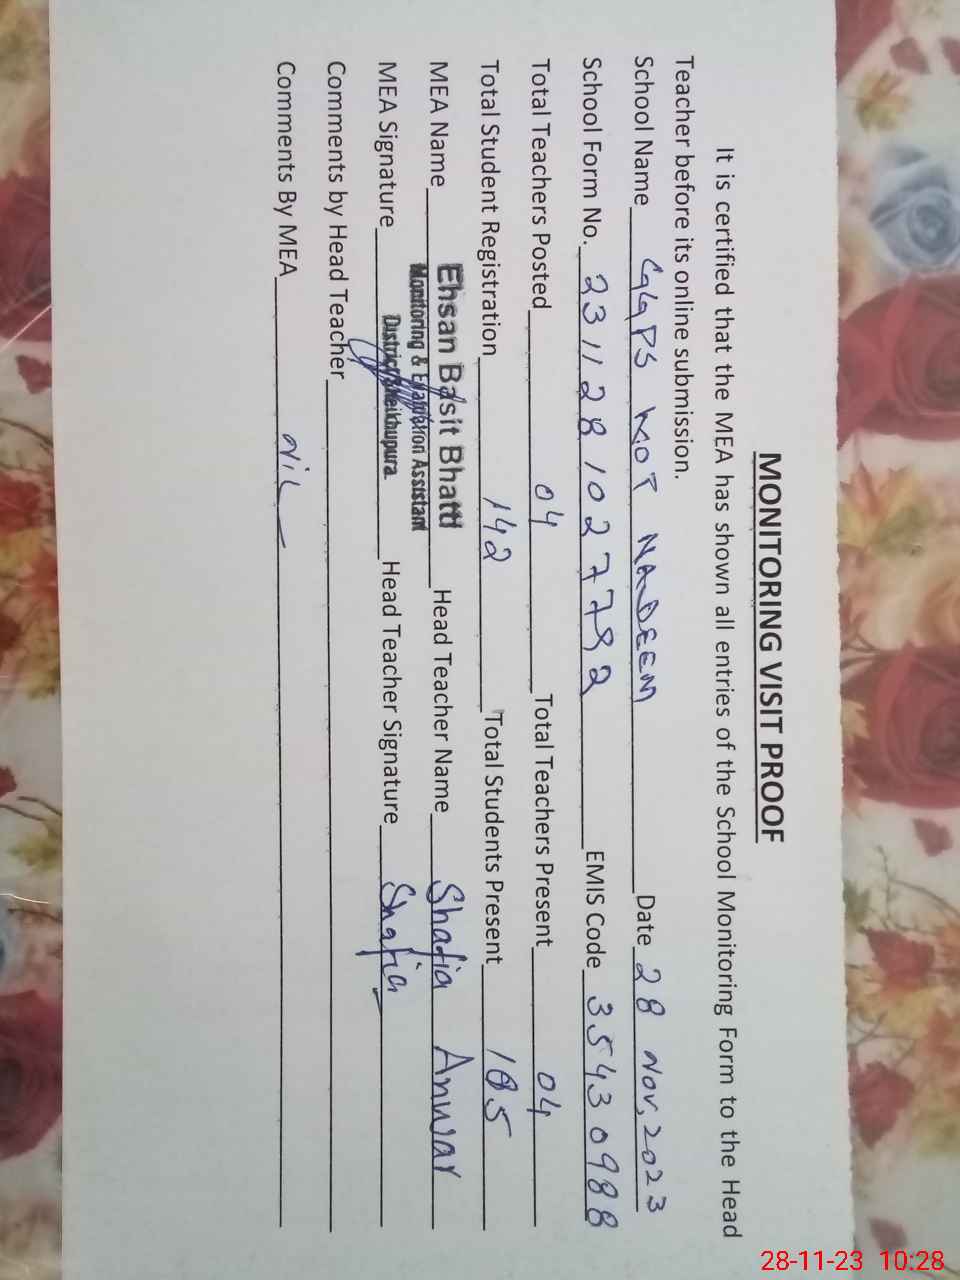 MONITORING VISIT PROOF
It is certified that the MEA has shown all entries of the School Monitoring Form to the Head
Teacher before its online submission.
School Name GGPS KOT NADEEM Date 28 Nov, 2023
School Form No. 23112810277 EMIS Code 35430988
Total Teachers Posted 04 Total Teachers Present 04
Total Student Registration 142 Total Students Present 105
MEA Name Ehsan Basit Bhatti Head Teacher Name Shafia Anwar
Monitoring & Evaluation Assistant
MEA Signature District Sheikhupura Head Teacher Signature Shafia
Comments by Head Teacher
Comments By MEA NIL
28-11-23 10:28